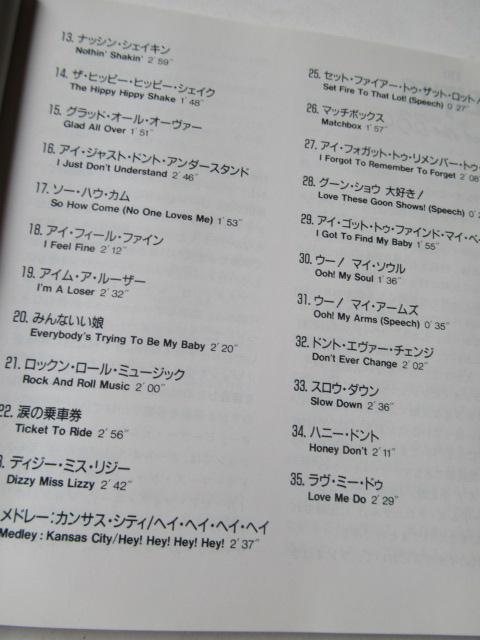 13. ナッシン・シェイキン
Nothin' Shakin' 2'59"
14. ザ・ヒッピー・ヒッピー・シェイク
The Hippy Hippy Shake 1'48"
15. グラッド・オール・オーヴァー
Glad All Over 1'51"
16. アイ・ジャスト・ドント・アンダースタンド
I Just Don't Understand 2'46"
17. ソー・ハウ・カム
So How Come (No One Loves Me) 1'53"
18. アイ・フィール・ファイン
I Feel Fine 2'12"
19. アイム・ア・ルーザー
I'm A Loser 2'32"
20. みんないい娘
Everybody's Trying To Be My Baby 2'20"
21. ロックン・ロール・ミュージック
Rock And Roll Music 2'00"
22. 涙の乗車券
Ticket To Ride 2'56"
3. ディジー・ミス・リジー
Dizzy Miss Lizzy 2'42"
メドレー：カンサス・シティ/ヘイ・ヘイ・ヘイ・ヘイ
Medley : Kansas City/Hey! Hey! Hey! Hey! 2'37"
25. セット・ファイアー・トゥ・ザット・ロット！
Set Fire To That Lot! (Speech) 0'27"
26. マッチボックス
Matchbox 1'57"
27. アイ・フォガット・トゥ・リメンバー・トゥ・
I Forgot To Remember To Forget 2'08"
28. グーン・ショウ 大好き！
Love These Goon Shows! (Speech) 0'
29. アイ・ゴット・トゥ・ファインド・マイ・ベ
I Got To Find My Baby 1'55"
30. ウー！ マイ・ソウル
Ooh! My Soul 1'36"
31. ウー！ マイ・アームズ
Ooh! My Arms (Speech) 0'35"
32. ドント・エヴァー・チェンジ
Don't Ever Change 2'02"
33. スロウ・ダウン
Slow Down 2'36"
34. ハニー・ドント
Honey Don't 2'11"
35. ラヴ・ミー・ドゥ
Love Me Do 2'29"